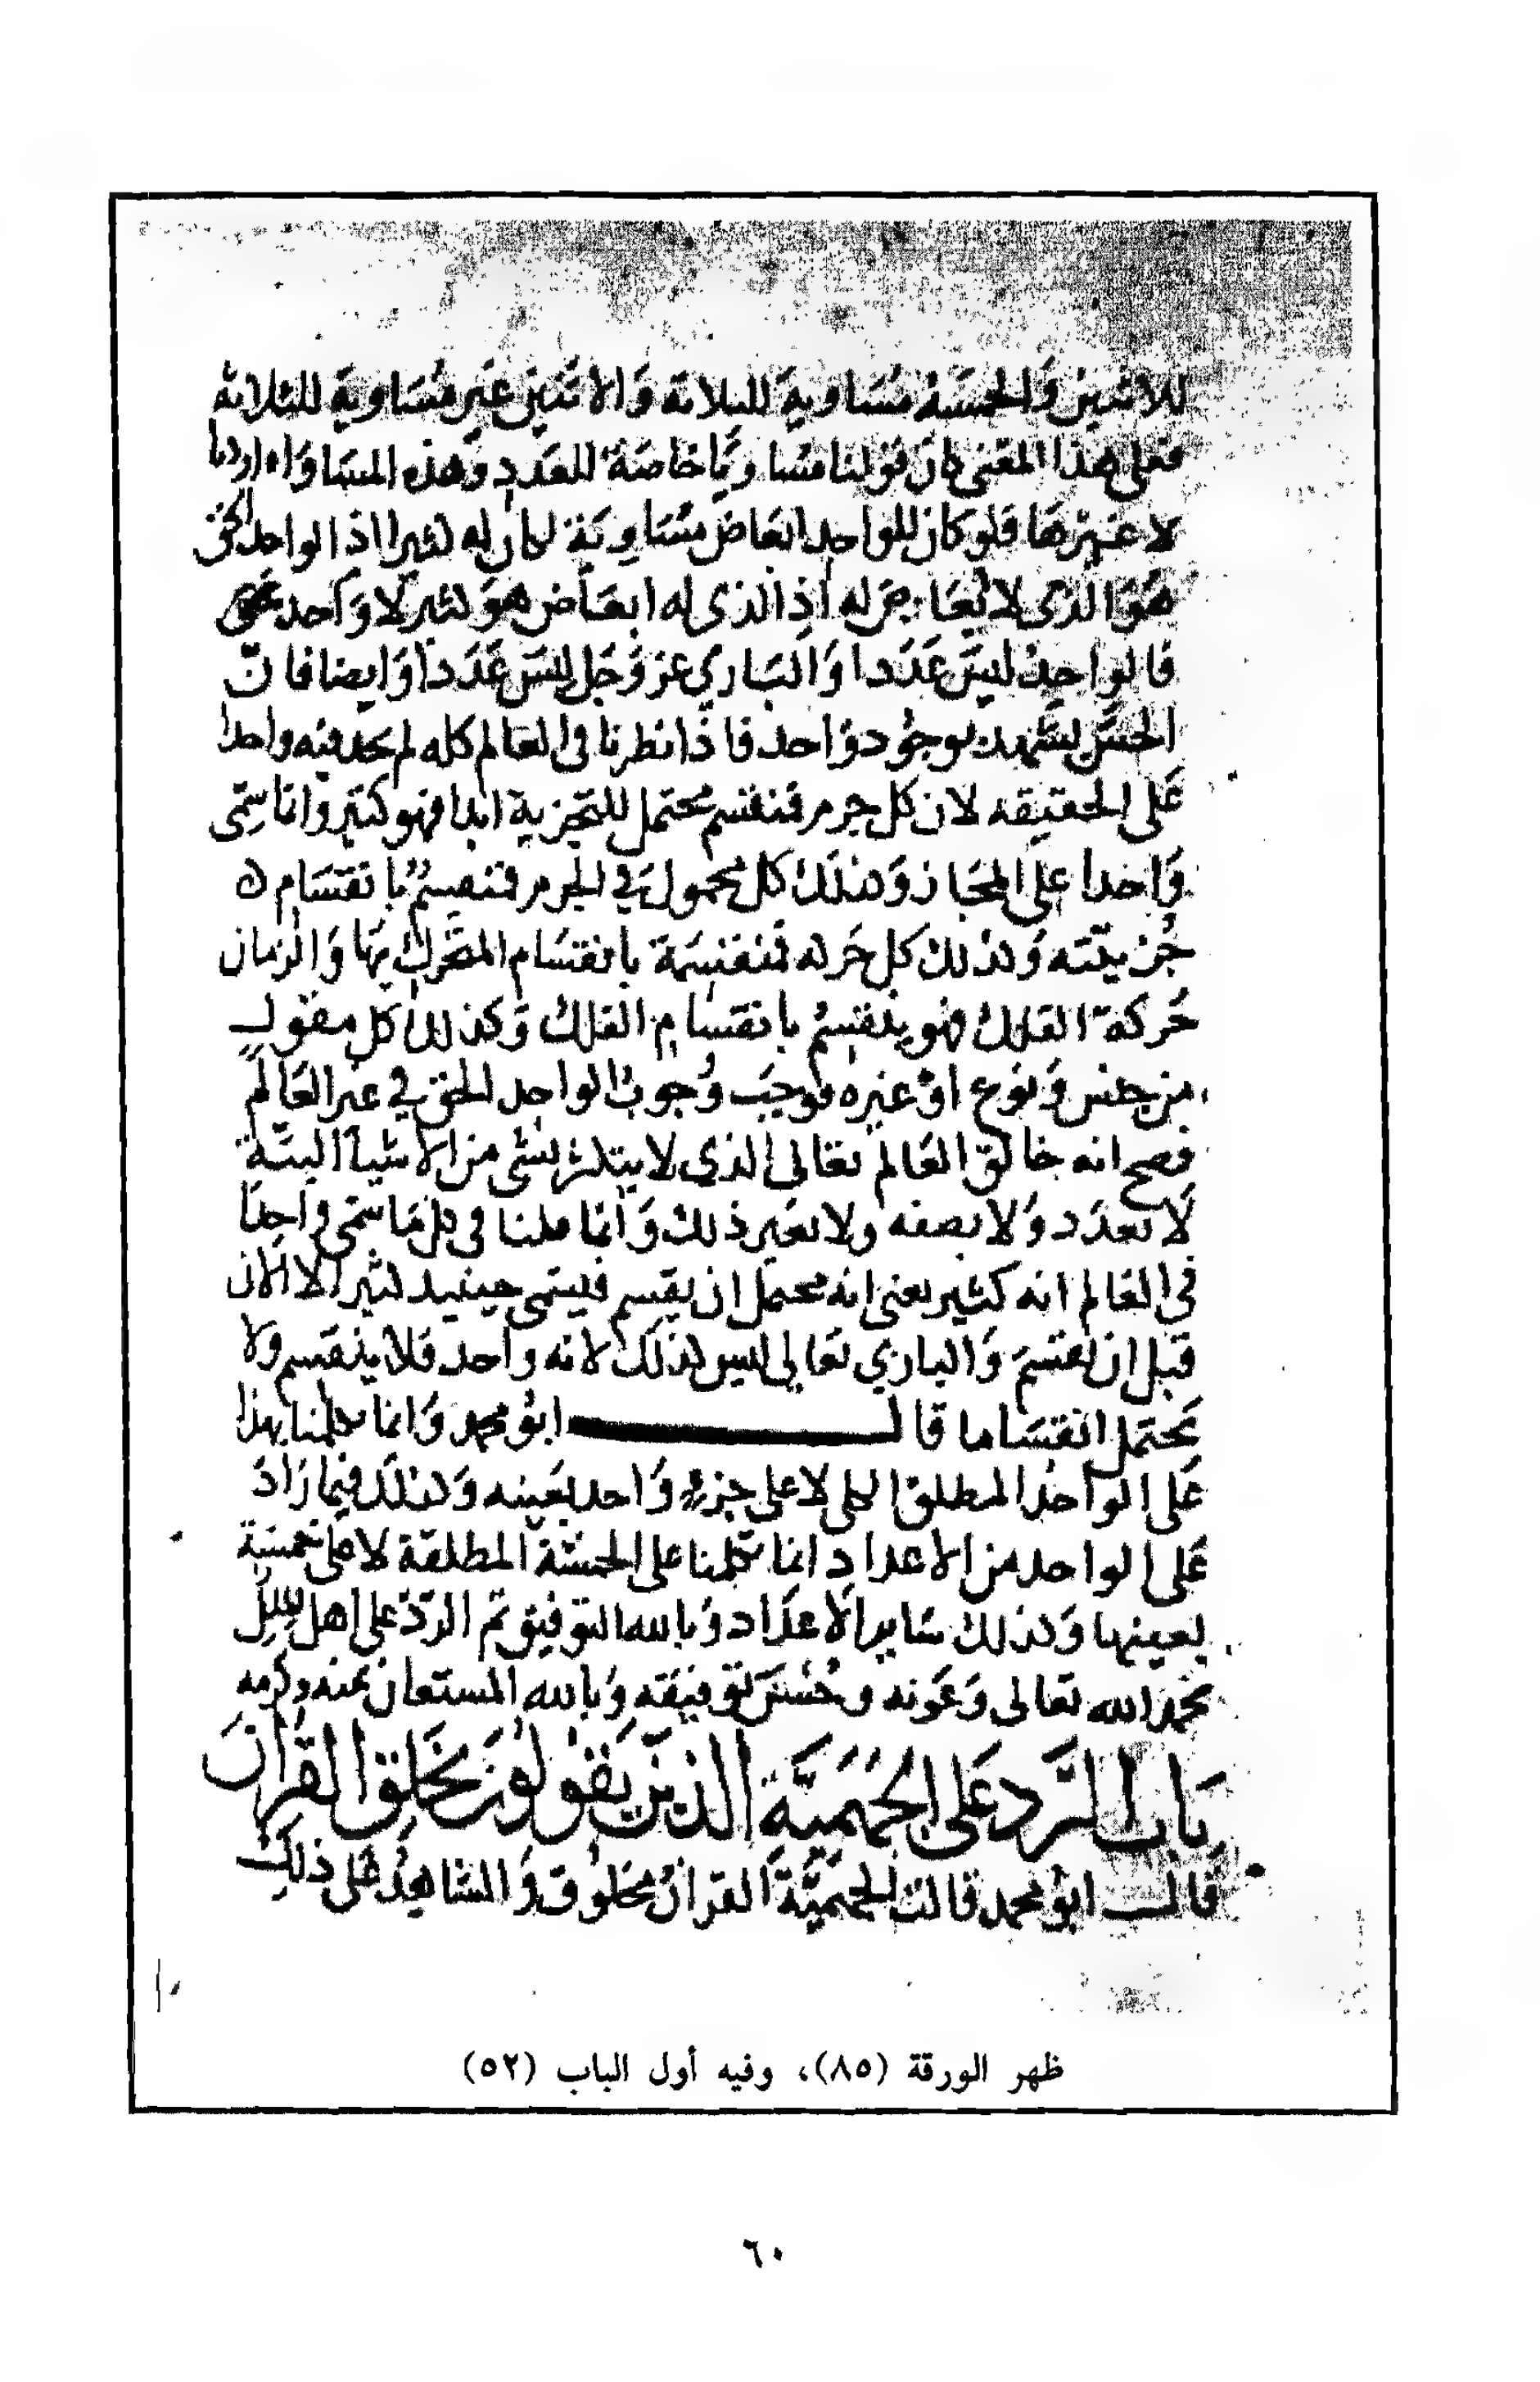 للاثنين وَالخمسَة مُسَاوية للثلاثة وَالاثنين غير مُسَاوية للثلاثة
فعلى هذا المعَنى كان قولنا مسَاويا خاصَة للعَدد وَهذه المسَاوَاه اردنا
لا غيرهَا فلو كان للواحد ابعَاض متسَاويَة لكان له كثيرا اذ الواحد الحق
هوَ الذي لا ابعَاض له اذ الذي له ابعَاض هوَ كثير لا وَاحد
فالواحد ليسَ عَدَدا وَالبَاري عز وَجَل ليسَ عَدَدا وَايضا فان
الحسَّ يشهد بوجُود وَاحد فاذا نظرنا في العَالم كله لم نجد فيه واحدا
عَلى الحقيقه لان كل جرم منقسم محتمل للتجزية ابدا فهو كثير وانما سمّى
وَاحدا على المجَاز وَكذلك كل محمول في الجرم فمنقسم بانقسَام
جُزييّته وَكذلك كل حَركه فمنقسَمة بانقسَام المتحَرك بهَا وَالزمان
حَركة الفلك فهو ينقسمُ بانقسَام الفلك وَكذلك كل مقول
من جنس وَنوع اوْ غيره فوجَب وُجوبُ الواحد الحق في غير العَالَم
فصح انه خالق العَالم تعَالى الذي لا يتكثر بشي من الاشيآ البتّة
لا بعَدَد وَلا بصفه ولا بغَير ذلك وَانما قلنا في كل مَا سمّى واحدا
في العَالم انه كثير يعني انه محتمل ان يقسم فيسمّى حينيد كثيرا لا الان
قبل ان يقسَم وَالباري تعَالى ليس كذلك لانه واحد فلا ينقسم ولا
يَحتمل انقسَاما قال ابُو محمد وَانما تكلمنا بهذا
عَلى الواحد المطلق الكلي لا على جزء وَاحد بعَينه وَكذلك فيما زادَ
عَلى الواحد من الاعداد انما تكلمنا على الخمسَة المطلقة لا على خمسَة
بعينها وَكذلك سَاير الاعدَاد وَبالله التوفيق تم الردّ على اهل الملل
بحمد الله تعَالى وَعَونه وحُسنَ توفيقه وَبالله المستعَان بمنه وكرمه
بَاب الرَّد عَلى الجُهَميَّة الذينَ يَقولونَ بخَلق القرآنَ
قالَـــت ابُو محمد قالت الجهميَّة القرانُ مخلُوق وَالشاهدُ عَلى ذلك
ظهر الورقة (٨٥)، وفيه أول الباب (٥٢)
٦٠